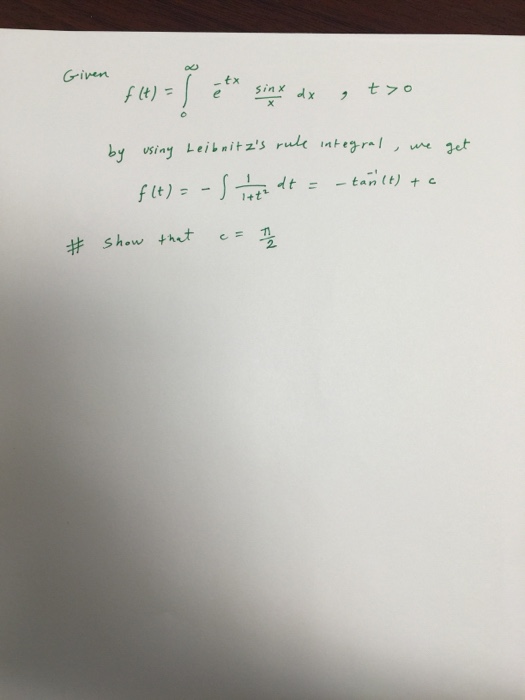 Given
f(t) = ∫₀^∞ e^{-tx} sinx/x dx , t>0
by using Leibnitz's rule integral, we get
f(t) = - ∫ 1/(1+t²) dt = - tan⁻¹(t) + c
# show that c = π/2